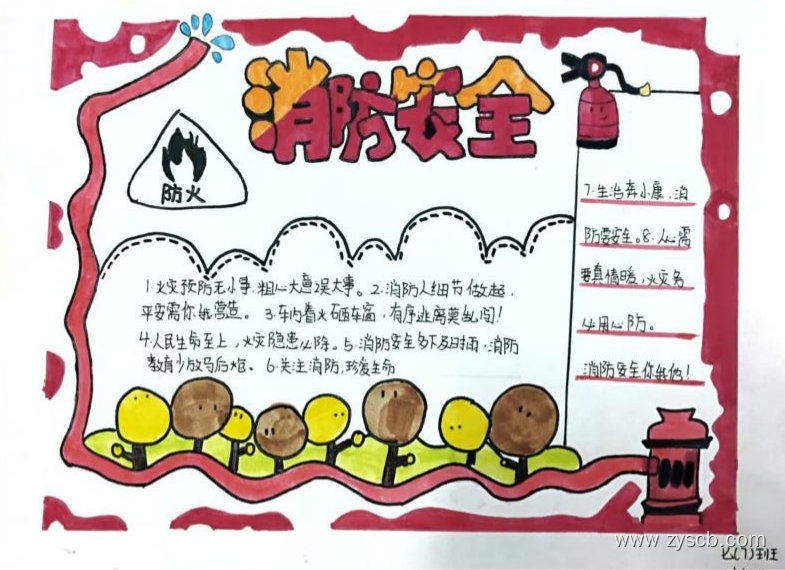 消防安全
防火
1.火灾预防无小事,粗心大意误大事。2.消防从细节做起,
平安需你我营造。3.车内着火砸车窗,有序逃离莫乱闯!
4.人民生命至上,火灾隐患必除。5.消防安全多下及时雨,消防
教育少放马后炮。6.关注消防,珍爱生命
7.生活奔小康,消
防要安全。8.人心需
要真情暖,火灾务
必用心防。
消防安全你我他!
www.zyscb.com
(7)班